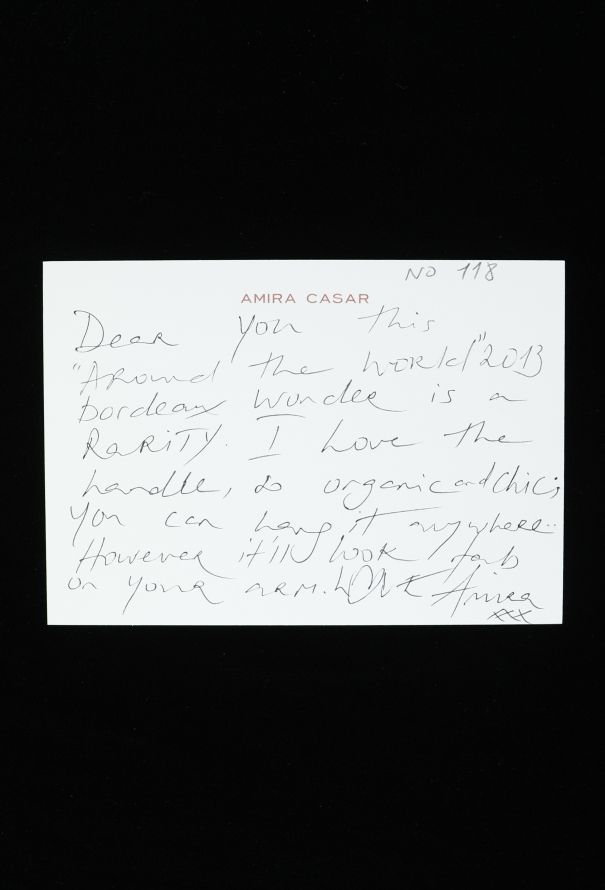 NO 118
AMIRA CASAR
Dear You this
"Around the world" 2013
bordeaux wonder is a
RaRiTY. I love the
handle, so organic and chic;
You can hang it anywhere..
However it'll look fab
on your arm. LOVE Amira
xxx